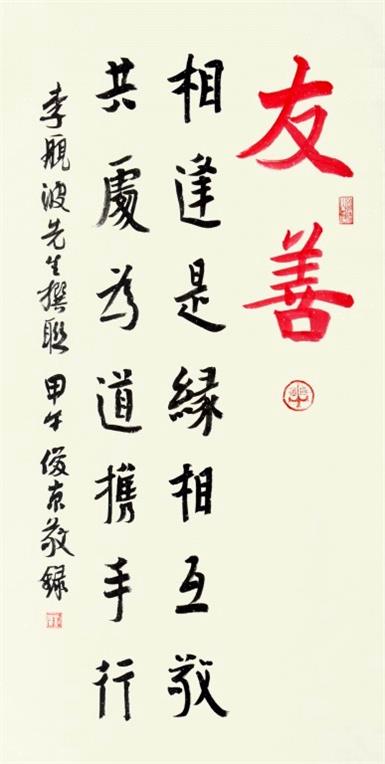 友善
相逢是緣相互敬
共處为道攜手行
李舰波先生撰联 甲午 俊京敬録